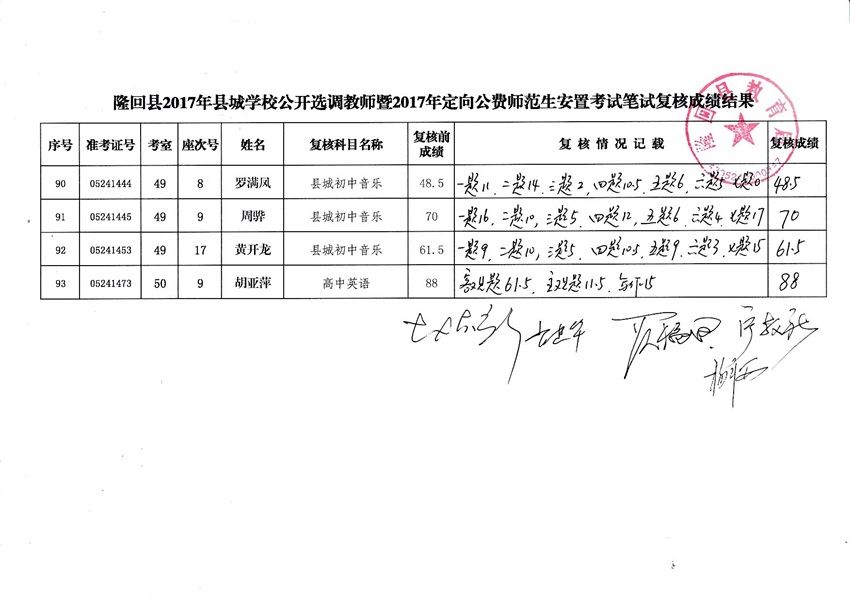 隆回县2017年县城学校公开选调教师暨2017年定向公费师范生安置考试笔试复核成绩结果
隆回县教育局
序号 准考证号 考室 座次号 姓名 复核科目名称 复核前成绩 复核情况记载 复核成绩
90 05241444 49 8 罗满凤 县城初中音乐 48.5 一题11, 二题14, 三题2, 四题10.5, 五题6, 六题5 七题0 48.5
91 05241445 49 9 周骅 县城初中音乐 70 一题16, 二题10, 三题5, 四题12, 五题6 六题4 七题17 70
92 05241453 49 17 黄开龙 县城初中音乐 61.5 一题9, 二题10, 三题5, 四题10.5 五题9, 六题3, 七题15 61.5
93 05241473 50 9 胡亚萍 高中英语 88 客观题61.5, 主观题11.5, 15 88